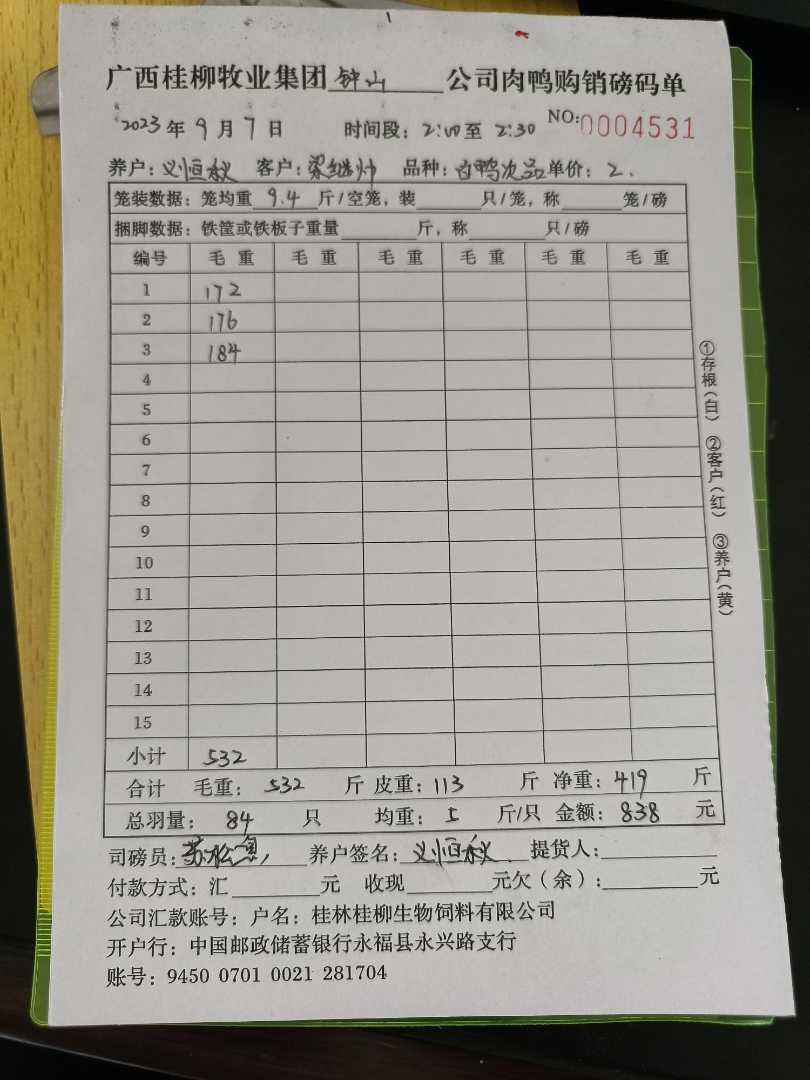 广西桂柳牧业集团钟山公司肉鸭购销磅码单
2023年9月7日 时间段：2:00至2:30 NO:0004531
养户：义恒秋 客户：梁继帅 品种：白鸭次品 单价：2.
笼装数据：笼均重9.4斤/空笼，装 只/笼，称 笼/磅
捆脚数据：铁筐或铁板子重量 斤，称 只/磅
编号 毛重 毛重 毛重 毛重 毛重 毛重
1 172
2 176
3 184
4
5
6
7
8
9
10
11
12
13
14
15
小计 532
合计 毛重：532斤 皮重：113斤 净重：419斤
总羽量：84只 均重：5斤/只 金额：838元
司磅员： 养户签名：义恒秋 提货人：
付款方式：汇 元 收现 元欠（余）： 元
公司汇款账号：户名：桂林桂柳生物饲料有限公司
开户行：中国邮政储蓄银行永福县永兴路支行
账号：9450 0701 0021 281704
①存根（白） ②客户（红） ③养户（黄）